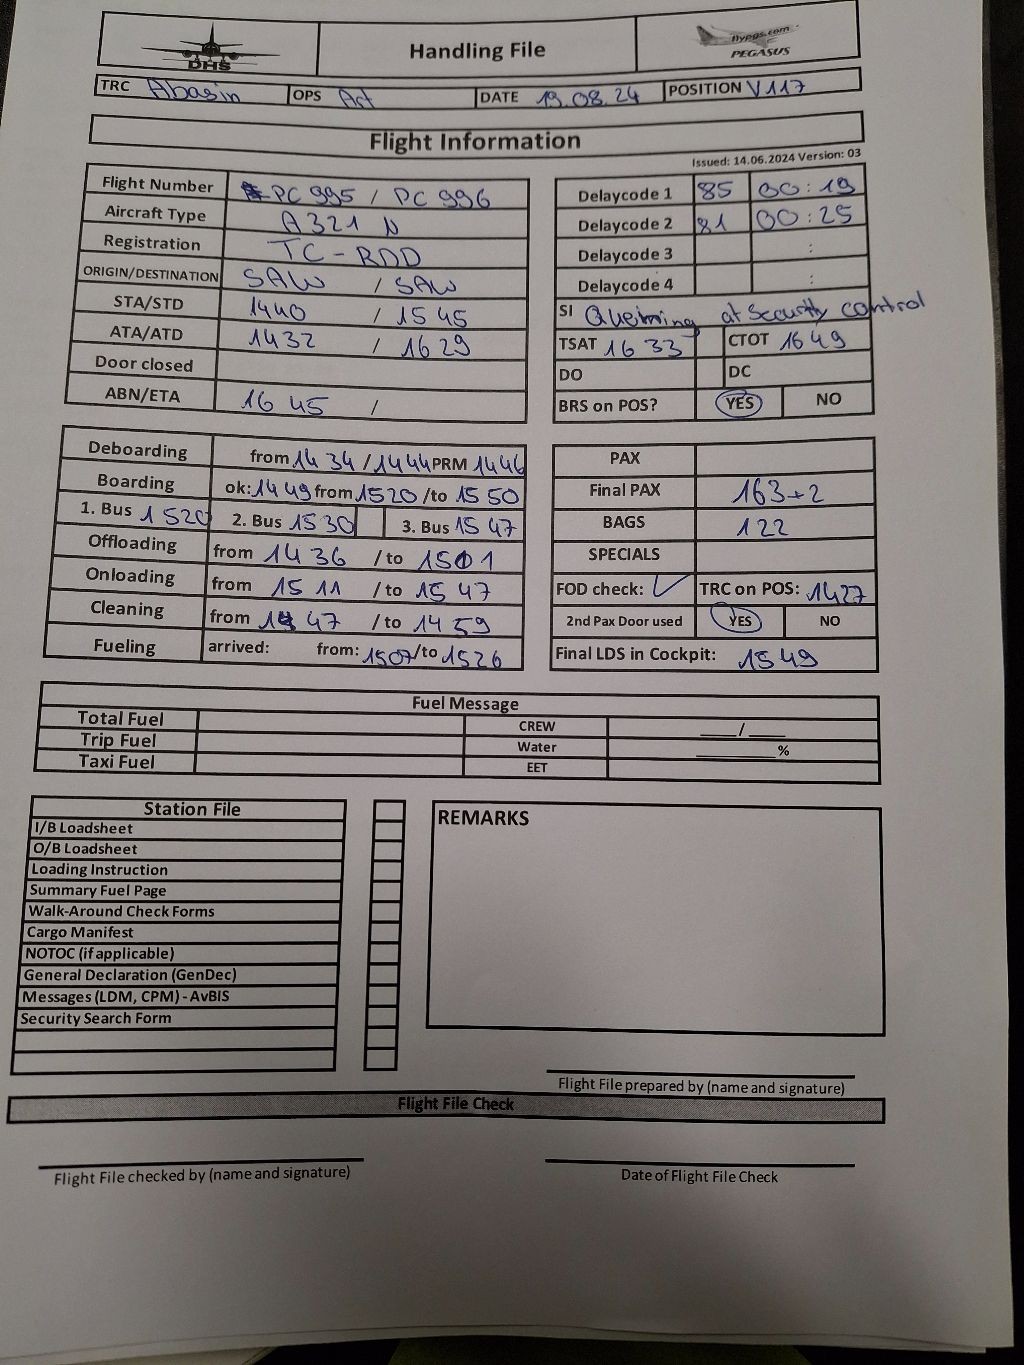 DHS
Handling File
flypgs.com
PEGASUS
TRC Abasin OPS Art DATE 19.08.24 POSITION V117
Flight Information
Issued: 14.06.2024 Version: 03
Flight Number PC 995 / PC 996
Aircraft Type A321 N
Registration TC-RDD
ORIGIN/DESTINATION SAW / SAW
STA/STD 1440 / 1545
ATA/ATD 1432 / 1629
Door closed
ABN/ETA 16 45 /
Delaycode 1 85 00:19
Delaycode 2 81 00:25
Delaycode 3 :
Delaycode 4 :
SI Queining at Security control
TSAT 1633 CTOT 1649
DO DC
BRS on POS? YES NO
Deboarding from 1434 / 1444 PRM 1446
Boarding ok: 1449 from 1520 /to 1550
1. Bus 1520 2. Bus 1530 3. Bus 1547
Offloading from 1436 / to 1501
Onloading from 1511 / to 1547
Cleaning from 1447 / to 1459
Fueling arrived: from: 1507 /to 1526
PAX
Final PAX 163+2
BAGS 122
SPECIALS
FOD check: ✓ TRC on POS: 1427
2nd Pax Door used YES NO
Final LDS in Cockpit: 1549
Fuel Message
Total Fuel CREW ____/____
Trip Fuel Water ________%
Taxi Fuel EET
Station File
I/B Loadsheet
O/B Loadsheet
Loading Instruction
Summary Fuel Page
Walk-Around Check Forms
Cargo Manifest
NOTOC (if applicable)
General Declaration (GenDec)
Messages (LDM, CPM) - AvBIS
Security Search Form
REMARKS
Flight File prepared by (name and signature)
Flight File Check
Flight File checked by (name and signature)
Date of Flight File Check